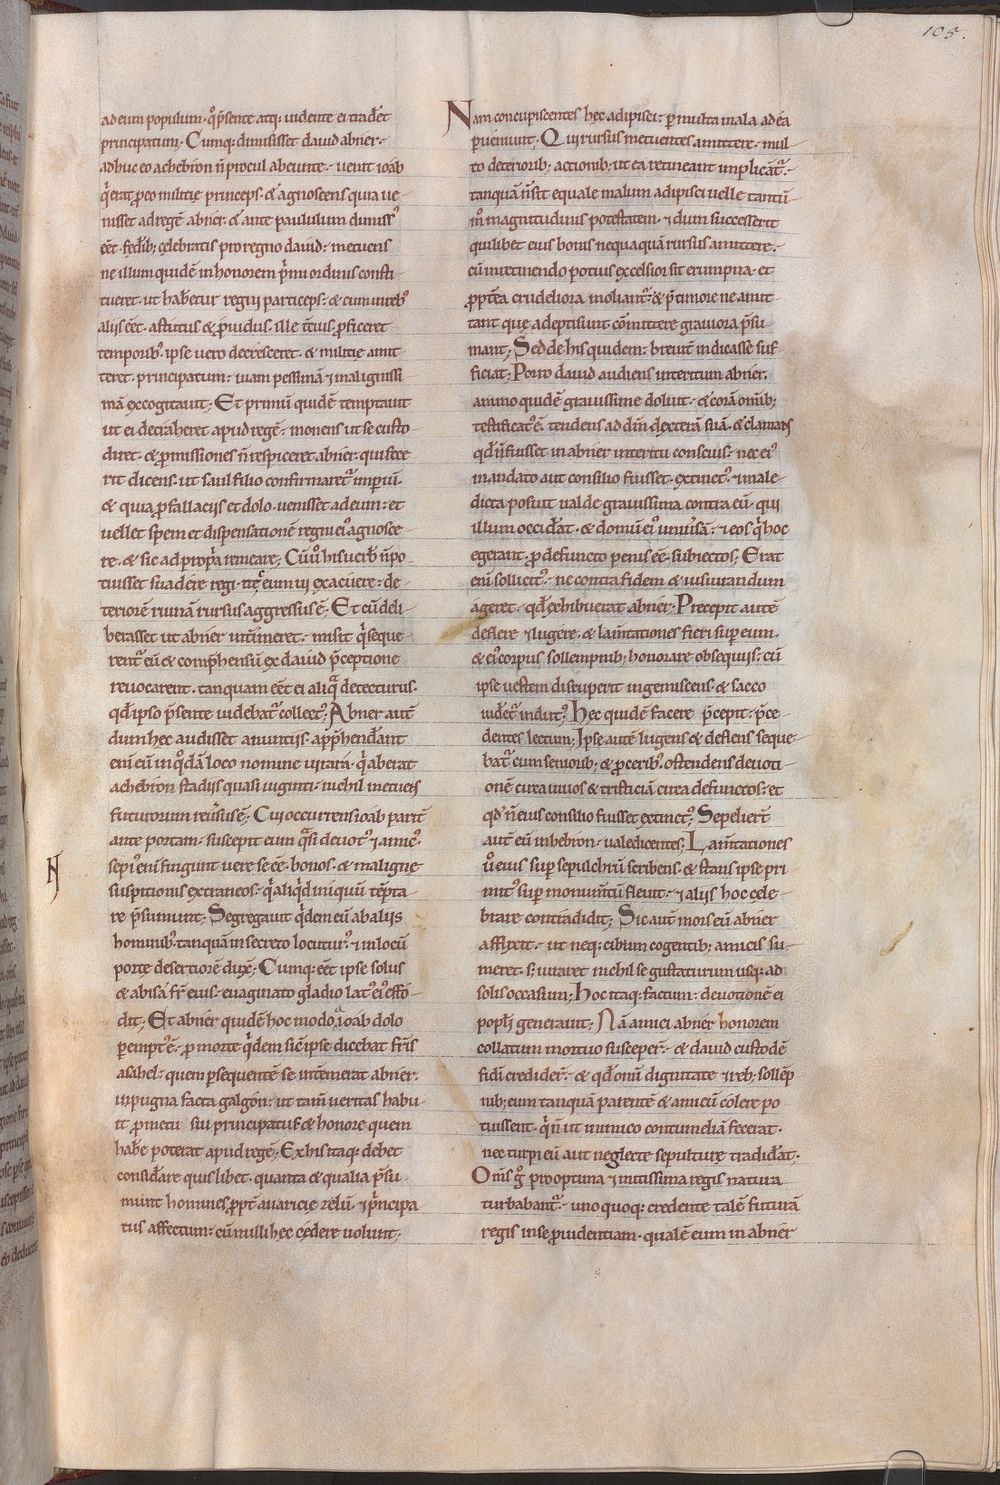 105.
ad eum populum· q̊ p̄sente atq; uidente ei trad̄et
principatum· Cumq; dimisisset dauid abner·
adhuc eo a chebron n̄ procul abeunte· uenit ioab
q̇ erat ꝓ eo militie princeps· & agnoscens quia ue-
nisset ad regē abner & ante paululum dimissꝰ
eēt· fed̄ib; celebratis pro regno dauid· metuens
ne illum quidē in honorem p̄mi ordinis consti-
tueret· ut hab̄etur regni particeps· & cum in rebꝰ
alijs eēt· astutus & ꝓuidus· ille t̄ius ꝓficeret
temporibꝰ· ipse uero decresceret· & militie amit-
teret· principatum· uiam pessimā & malignissi-
mā excogitauit; Et primū quidē temptauit
ut ei detraheret apud regē· monens ut se custo-
diret· & ꝓmissiones n̄ respiceret abner· qui fece-
rit dicens· ut saul filio confirmaret᷑ imꝑiū·
& quia ꝓ fallacijs et dolo· uenisset ad eum· et
uellet spem et dispensationē regni eiꝰ agnosce-
re· & sic ad propria remeare; Cū u̇o his uerb̄ n̄ po-
tuisset suadere regi· neq; eum uı exacuere· de-
teriorē ruinā rursus aggressus ē; Et cū deli-
berasset ut abner int̄imeret· misit q̇ seque-
rent᷑ eū & comp̄hensū ex dauid p̄ceptione
reuocarent· tanquam eēt ei aliq̄ detecturus·
qd̄ ipso p̄sente uidebat᷑ collect᷑; Abner aut̄
dum hec audisset a nuntijs· app̄hend̄ant
enī eū in q̊dā loco nomine uirarā· q̇ aberat
a chebron stadijs quasi uiginti· nichil metuens
futurorum reūsus ē; Cui occurrens ioab parit᷑
ante portam· suscepit eum q̄si deuotꝰ & amicꝰ·
sepiꝰ enī fingunt uere se eē· bonos· & maligne
suspitionis extraneos· q̇ aliq̇d iniquū tēpta-
re p̄sumunt; Segregauit q̇dem eū ab alijs
hominibꝰ· tanquā in secreto locuturꝰ· & in locū
porte desertiorē dux̄; Cumq; eēt ipse solus
& abisai fr̄ eius· euaginato gladio latꝰ eiꝰ effo-
dit; Et abner quidē hoc modo a ioab dolo
peremptꝰ ē· ꝓ morte q̇dem sic̄ ipse dicebat fr̄is
asahel· quem ꝑsequentē se int̄emerat abner·
in pugna facta galgon· ut tam̄ ueritas habu-
it ꝓ metu sui principatus & honore quem
hab̄e poterat apud regē· Ex his itaq; debet
consid̄are quis libet· quanta & qualia p̄su-
munt homines ꝓpt̄ auaricie zelū· & p̄ncipa-
tus affectum· cū nulli hec cedere uolunt;
N
Nam concupiscentes hec adipisci· ꝑ multa mala ad ea
ꝑueniunt· Qui rursus metuentes amittere· mul-
to deteriorib; actionib; ut ea retineant implicāt᷑·
tanquā n̄ sit equale malum adipisci uelle tantū-
m̊ magnitudinis potestatem· & dum successerit
quilibet eius bonis nequaquā rursus amittere·
cū in retinendo potius excelsior sit erumpna· et
ꝓpt̄ea crudeliora moliant᷑· & p̄ timore ne amit-
tant que adepti sunt cōmittere grauiora p̄su-
mant; Sed de his quidem· breuit̄ indicasse suf-
ficiat; Porro dauid audiens interitum abner·
animo quidē grauissime doluit· & corā omib;
testificatꝰ ē· tendens ad dn̄m dexterā suā· & clamans
qd̄ n̄ fuisset in abner interitu conscius· nec eiꝰ
mandato aut consilio fuisset· extinctꝰ· & male-
dicta posuit ualde grauissima contra eū· qui
illum occid̄at· & domū eiꝰ uniūsā· & eos q̇ hoc
egerant· ꝓ defuncto penis eē· subiectos; Erat
enī sollicitꝰ· ne contra fidem & iusiurandum
ageret· qd̄ exhibuerat abner; Precepit autē
deflere & lugere· & lam̄tationes fieri suꝑ eum·
& eiꝰ corpus sollempnib; honorare obsequijs; cū
ipse uestem disruperit ingemiscens· & sacco
uid̄et᷑ indutꝰ; Hec quidē facere p̄cepit· p̄ce-
dentes lectum; Ipse autē lugens & deflens seque-
bat᷑ cum seniorib; & ꝓceribꝰ· ostendens deuoti-
onē circa uiuos & tristiciā circa defunctos· et
qd̄ n̄ eius consilio fuisset extinctꝰ; Sepelierūt
autē eū in hebron· ualedicentes; Lam̄tationes
u̇o eius suꝑ sepulchrū scribens· & stans ipse pri-
mitꝰ suꝑ monum̄tū fleuit· & alijs hoc cele-
brare contradidit; Sic aut̄ mors eū abner
afflixit· ut neq; cibum cogentib; amicis su-
meret· s; iuraret nichil se gustaturum usq; ad
solis occasum; Hoc itaq; factum· deuotionē ei
popl̄i generauit; Nā amici abner honorem
collatum mortuo susceper̄· & dauid custodē
fidei credider̄· & qd̄ omī dignitate & reb; sollēp-
nib; eum tanquā parentē & amicū colere po-
tuissent· q̇ n̄ ut inimico contumeliā fecerat·
nec turpi eū aut neglecte sepulture tradid̄at·
Om̄s g̊ pro optima & mitissima regis natura
turbabant᷑· uno quoq; credente talē futurā
regis in se ꝓuidentiam· qualē eum in abner